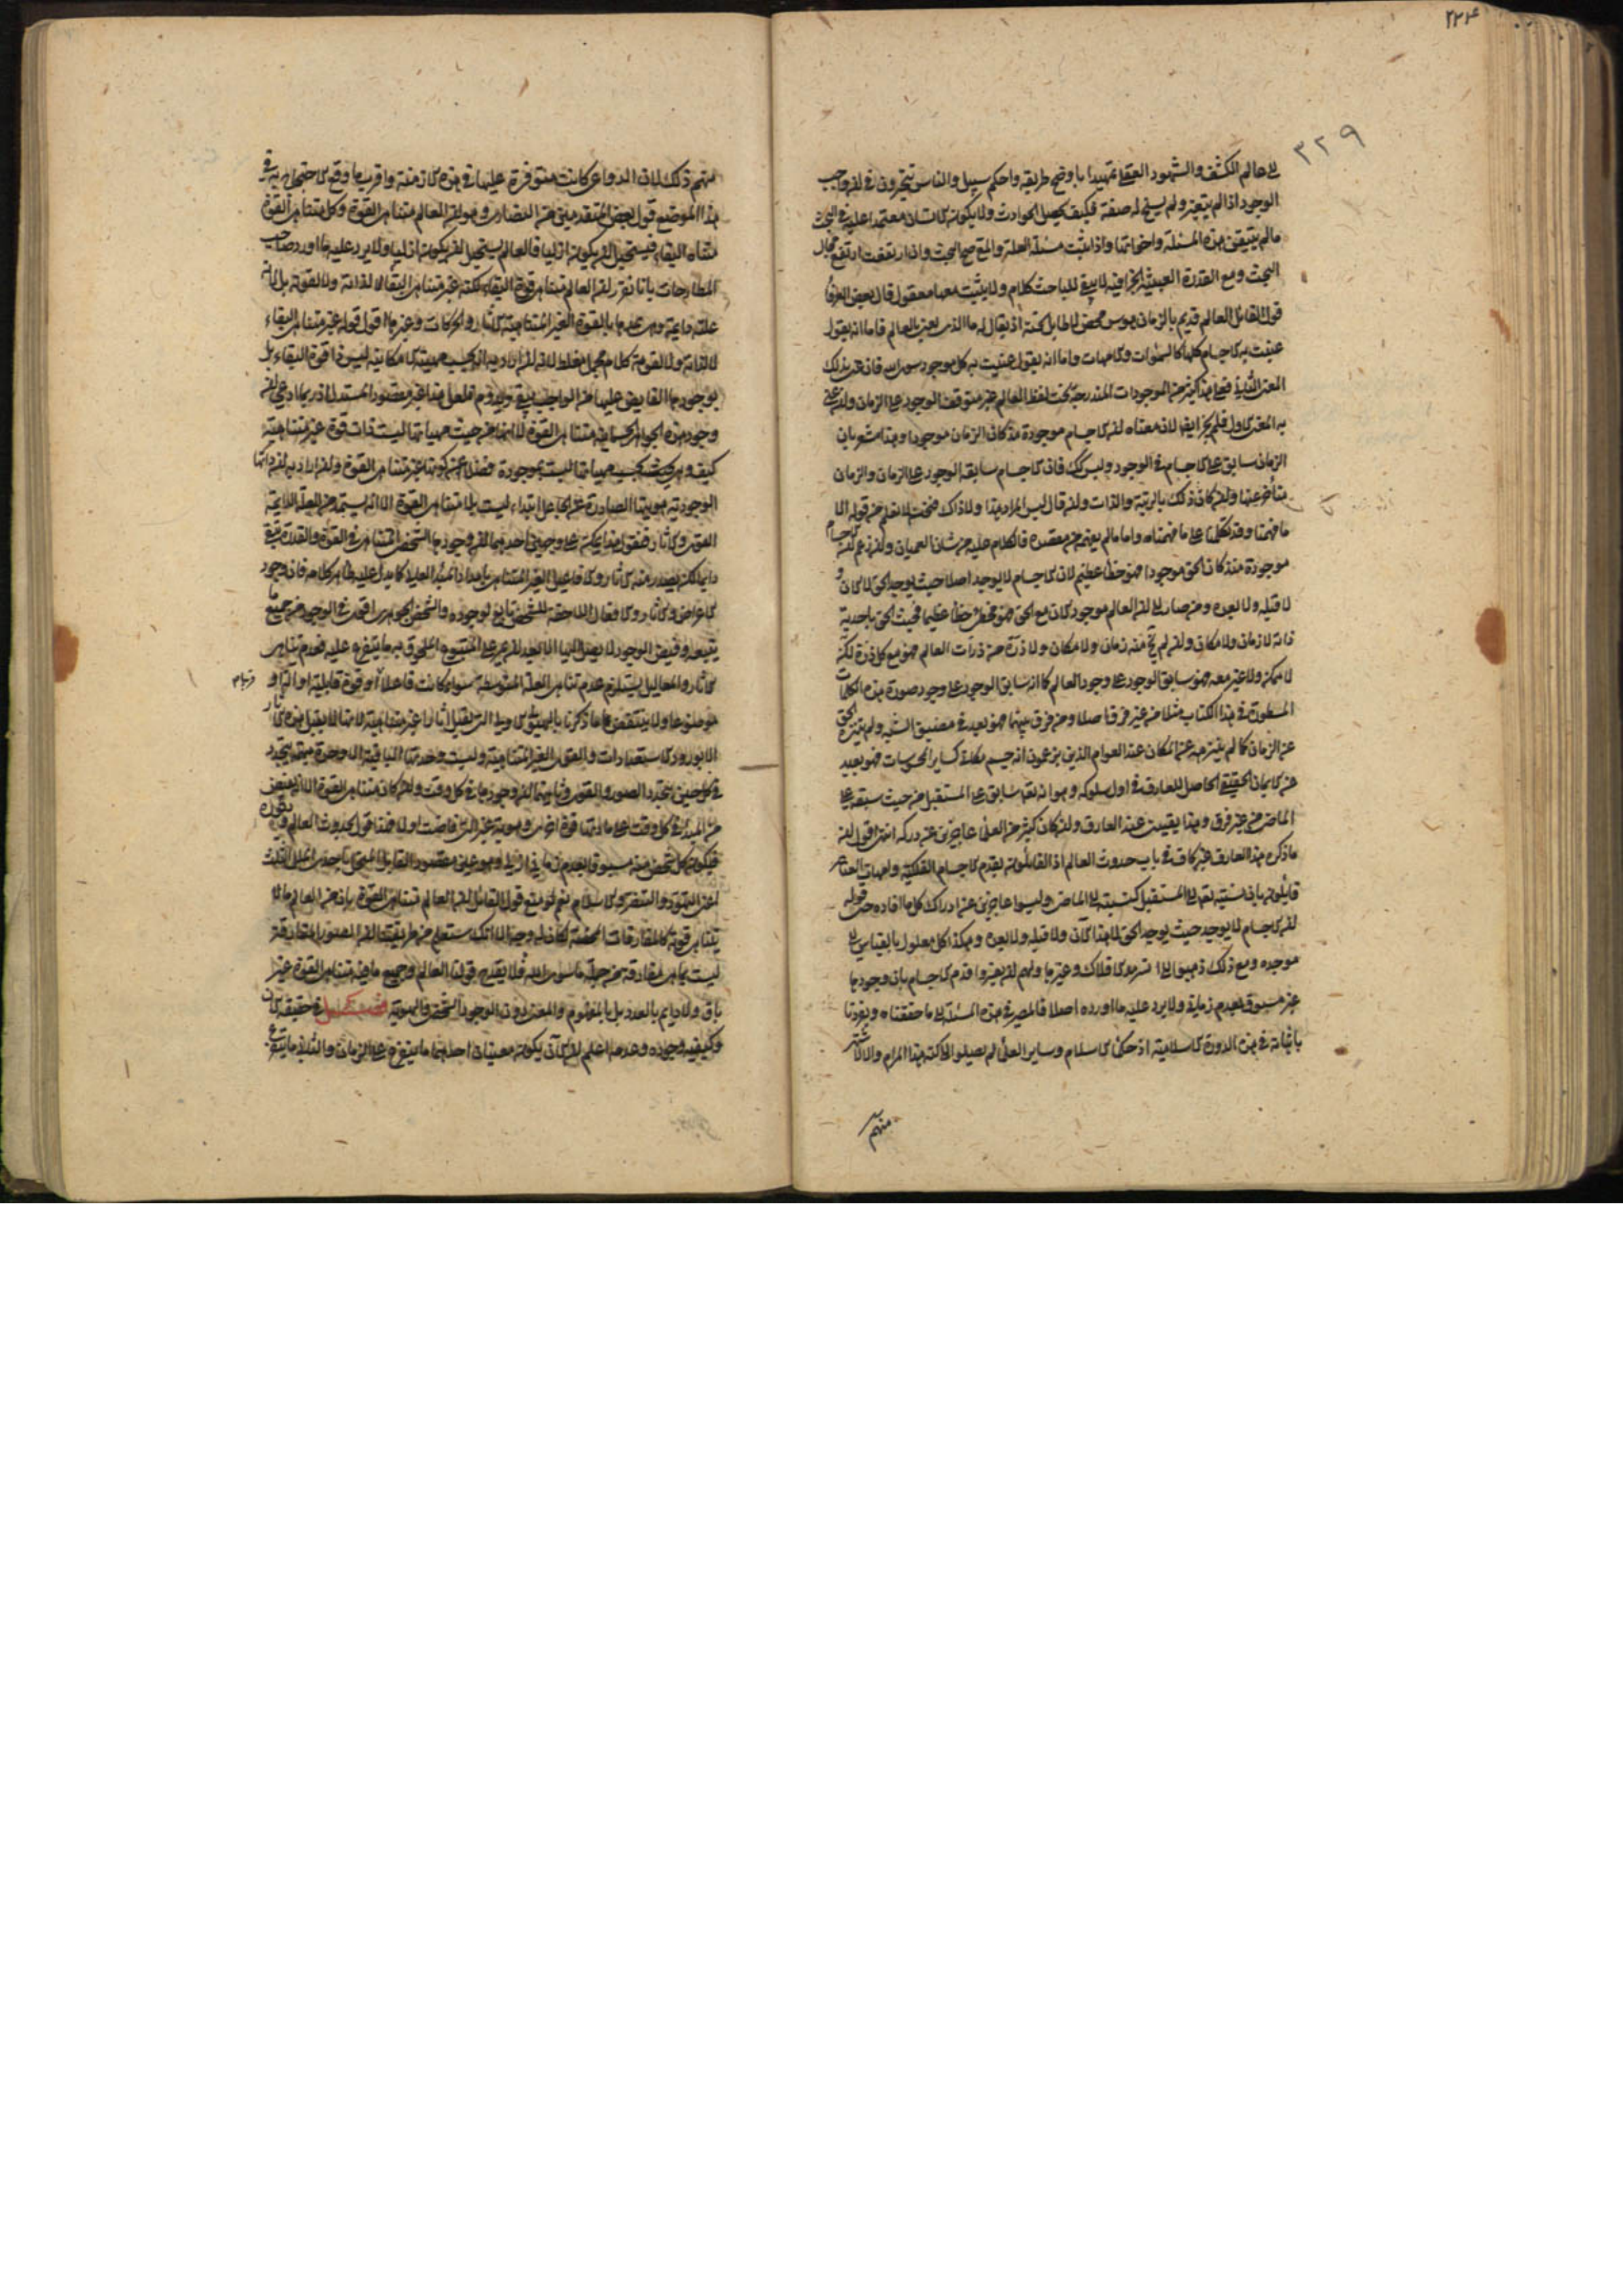 ۲۲۴
۳۲۹
عالم الكشف والشهود العقلى تمهيدا باوضح طريقه واحكم سبيل والناس متحيرون فى ان واجب
الوجود اذا لم يتغير ولم يسنح له صفة فكيف يحصل الحوادث ولا يكون للانسان معتمد عليه فى البحث
مالم يتيقن هذه المسئلة واخواتها واذا ثبت مسئلة العلة والمع صح البحث واذا ارتفعت ارتفع مجال
البحث ومع القدرة العبثية الجزافية لا يبقى للباحث كلام ولا يثبت معها معقول قال بعض العرفا
قول القائل العالم قديم بالزمان هوس محض لا طايل تحته اذ يقال له ما الذى يعنى بالعالم فاما ان يقول
عنيت به الاجسام كلها كالسموات والامهات واما ان يقول عنيت به كل موجود سوى الله فان عنى بذلك
المعنى الثانى فعلى هذا كثير من الموجودات المندرجة تحت لفظ العالم غير متوقف الوجود على الزمان وان عنى
به المعنى الاول فلم يجز ايضا لان معناه ان الاجسام موجودة مذ كان الزمان موجودا وهذا مشعر بان
الزمان سابق على الاجسام فى الوجود وليس كك فان الاجسام سابقة الوجود على الزمان والزمان
متأخر عنها وان كان ذلك بالرتبة والذات وان قال ليس المراد هذا ولا ذاك فنحن لا نعلم من قوله الا
ما فهمنا وقد تكلمنا على ما فهمناه واما مالم يفهم من مقصده فالكلام عليه من شان العميان وان زعم ان الاجسام
موجودة منذ كان الحق موجودا فهو خطأ عظيم لان الاجسام لا يوجد اصلا حيث يوجد الحق لا الان و
لا قبله ولا بعده ومن صار الى ان العالم موجود الان مع الحق فهو مخطئ خطأ عظيما فحيث الحق باحدية
ذاته لا زمان ولا مكان وان لم يخ منه زمان ولا مكان ولا ذرة من ذرات العالم فهو مع كل ذرة لكن
لا ممكن ولا غير معه فهو سابق الوجود على وجود العالم كما انه سابق الوجود على وجود صورة هذه الكلمات
المسطورة فى هذا الكتاب مثلا من غير فرق اصلا ومن فرق بينهما فهو بعد فى مضيق الشبه ولم ينزه الحق
عن الزمان كما لم ينزهه عن المكان عند العوام الذين يزعمون انه جسم مكانى كساير المحسوسات فهو بعيد
عن الايمان الحقيقى الحاصل للعارف فى اول سلوكه وهو انه تعه سابق على المستقبل من حيث سبقه على
الماضى من غير فرق وهذا يقينى عند العارف وان كان كثير من العلماء عاجزين عن دركه انتهى اقول ان
ماذكره هذا العارف غير كاف فى باب حدوث العالم اذ القائلون بقدم الاجسام الفلكية وامهات العناصر
قائلون بان نسبته تعه الى المستقبل كنسبته الى الماضى وليسوا عاجزين عن ادراك كل ما افاده حتى قوله
ان الاجسام لا يوجد حيث يوجد الحق لا هذا الان ولا قبله ولا بعده وهكذا كل معلول بالقياس الى
موجده ومع ذلك ذهبوا الى تسرمد الافلاك وغيرها ولهم ان يعنوا قدم الاجسام بان وجودها
غير مسبوق بعدم زمانى ولا يرد عليه ما اورده اصلا فالمصير فى هذه المسئلة الى ما حققناه وتفردنا
باثباته فى هذه الدورة الاسلامية اذ حكماء الاسلام وساير العلماء لم يصلوا الى كنه هذا المرام والا لاشتهر
منهم
منهم ذلك لان الدواعى كانت متوفرة عليها فى هذه الازمنة واقرب ما وقع الاحتجاج به فى
هذا الموضع قول بعض المتقدمين من النصارى وهو ان العالم متناهى القوة وكل متناهى القوة
متناه البقاء فيستحيل ان يكون ازليا فالعالم يستحيل ان يكون ازليا ولا يرد عليه ما اورد صاحب
المطارحات بانا نقرر ان العالم متناهى قوة البقاء لكنه غير متناهى البقاء لا لذاته ولا لقوته بل لان
علته دايمة وهى تمدها بالقوة الغير المتناهية كالاثار والحركات وغيرها اقول قوله غير متناهى البقاء
لا لذاته ولا لقوته كلام مجمل مغلط لانه ان اراد به انه بحسب مهيته الامكانية ليس ذا قوة البقاء بل
بوجودها الفايض عليها من الواجب يبقى ويدوم فلعل هذا غير مقصود المستدل اذ ربما ادعى ان
وجود هذه الجواهر الجسمانية متناهى القوة لا انها من حيث مهياتها ليست ذات قوة غير متناهية
كيف وهى بحسب مهياتها ليست بموجودة فضلا عن كونها غير متناهى القوة وان اراد به ان ذاتها
الوجودية وهويتها الصادرة عن الجاعل ابتداء ليست الا متناهى القوة الا انه يستمد من العلة الدايمة
القوى والاثار فنقول هذا يمكن على وجهين احدهما ان وجودها الشخصى المتناهى فى القوة والقدرة يبقى
دايما لكن يصدر منه الاثار والافاعيل الغير المتناهى بامداد المبدء العلى كما يدل عليه ظاهر كلامه فان وجود
الاعراض والاثار والافعال اللاحقة للشخص تابع لوجوده والشخص الجوهرى اقدم فى الوجود من جميع ما
يتبعه وفيض الوجود لا يصل اليها الا بعد ان يمر على المتبوع والملحوق به ما يتفرع عليه فعدم تناهى
الاثار والمعاليل يستلزم عدم تناهى العلة المتوسطة سواء كانت فاعلا او قوة قابلية او الة او
موضوعا ولا ينتقض ما ذكرنا بالهيولى الاولى التى يقبل اثارا غير متناهية لانها لا يقبل هذه الاثار
الا بورود الاستعدادات والقوى الغير المتناهية وليست وحدتها الباقية الا وحدة مبهمة يتجدد
فى كل حين بتجدد الصور والقوى وثانيهما ان وجودها فى كل وقت وان كان متناهى القوة الا انه يفيض
من المبدء فى كل وقت على مادتها قوة اخرى وهوية غير التى فاضت اولا فهذا قول بحدوث العالم وتجدده
فيكون كل شخص منه مسبوقا بعدم زمانى ازلى وهو عين مقصود القايل المحتج باحد من الملل الثلث
اعنى التهود والتنصر والاسلام نعم لو منع قول القائل ان العالم متناهى القوة بان من العالم ما لا
يتناهى قوته كالمفارقات المحضة لكان له وجه الا انك ستعلم من طريقتنا ان الصور المفارقة
ليست بما هى مفارقة من جملة ما سوى الله فلا يقدح قولنا العالم وجميع ما فيه متناهى القوة غير
باق ولا دايم بالعدد بل بالمفهوم والمعنى دون الوجود الشخصى والهوية فصل فى حقيقة الان
وكيفية وجوده وعدمه اعلم ان الان يكون له معنيان احدهما ما يتفرع على الزمان والثانى ما يتفرع